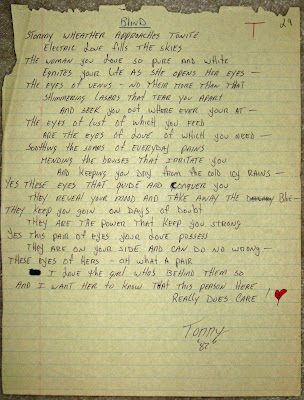 BLIND
T
29
STORMY WHEATHER APPROACHES TONITE
ELECTRIC LOVE FILLS THE SKIES
THE WOMAN YOU LOVE SO PURE AND WHITE
IGNITES YOUR LIFE AS SHE OPENS HER EYES —
THE EYES OF VENUS - NO THEIR MORE THAN THAT
SHIMMERING LASARS THAT TEAR YOU APART
AND SEEK YOU OUT WHERE EVER YOUR AT —
THE EYES OF LUST OF WHICH YOU FEED
ARE THE EYES OF LOVE OF WHICH YOU NEED —
SOOTHING THE SOARS OF EVERYDAY PAINS
MENDING THE BRUSES THAT IRRITATE YOU
AND KEEPING YOU DRY FROM THE COLD ICY RAINS —
YES THESE EYES THAT GUIDE AND CONQUER YOU
THEY REVEAL YOUR MOOD AND TAKE AWAY THE BLUE —
THEY KEEP YOU GOIN ON DAYS OF DOUBT
THEY ARE THE POWER THAT KEEP YOU STRONG
YES THIS PAIR OF EYES YOUR LOVE POSSESS
THEY ARE ON YOUR SIDE AND CAN DO NO WRONG —
THESE EYES OF HERS - OH WHAT A PAIR
I LOVE THE GIRL WHO'S BEHIND THEM SO
AND I WANT HER TO KNOW THAT THIS PERSON HERE
REALLY DOES CARE!
TOMMY
'87